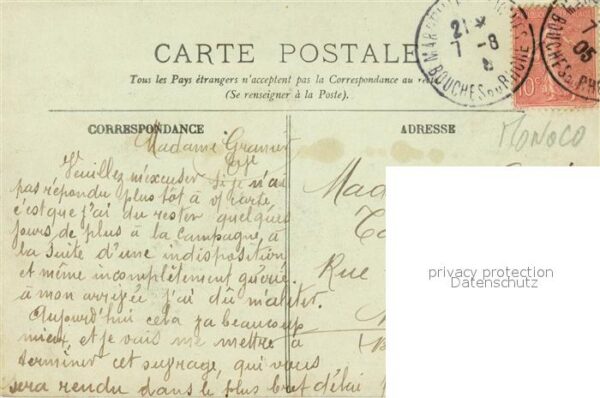 CARTE POSTALE
Tous les Pays étrangers n'acceptent pas la Correspondance au
(Se renseigner à la Poste).
CORRESPONDANCE
ADRESSE
MONOCO
Madame Granier
Veuillez m'excuser si je n'ai
pas répondu plus tôt à carte,
c'est que j'ai du rester quelques
jours de plus à la campagne, à
la suite d'une indisposition
et même incomplètement guérie.
à mon arrivée j'ai dû m'aliter.
Aujourd'hui cela va beaucoup
mieux, et je vais me mettre à
terminer cet ouvrage, qui vous
sera rendu dans le plus bref délai
Mad
Rue
21 *
7 -8
BOUCHES DU RHONE
10c
7
05
BOUCHES
privacy protection
Datenschutz